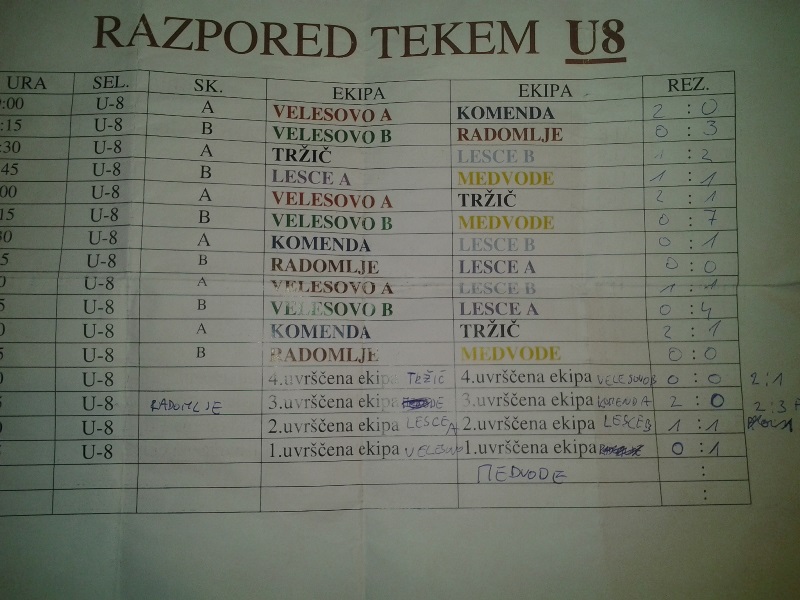 RAZPORED TEKEM U8
URA SEL. SK. EKIPA EKIPA REZ.
:00 U-8 A VELESOVO A KOMENDA 2 : 0
:15 U-8 B VELESOVO B RADOMLJE 0 : 3
:30 U-8 A TRŽIČ LESCE B 1 : 2
45 U-8 B LESCE A MEDVODE 1 : 1
00 U-8 A VELESOVO A TRŽIČ 2 : 1
15 U-8 B VELESOVO B MEDVODE 0 : 7
30 U-8 A KOMENDA LESCE B 0 : 1
5 U-8 B RADOMLJE LESCE A 0 : 0
0 U-8 A VELESOVO A LESCE B 1 : 1
5 U-8 B VELESOVO B LESCE A 0 : 4
0 U-8 A KOMENDA TRŽIČ 2 : 1
5 U-8 B RADOMLJE MEDVODE 0 : 0
0 U-8 4.uvrščena ekipa TRŽIČ 4.uvrščena ekipa VELESOVO B 0 : 0 2:1
5 U-8 RADOMLJE 3.uvrščena ekipa 3.uvrščena ekipa KOMENDA 2 : 0 2:3
U-8 2.uvrščena ekipa LESCE A 2.uvrščena ekipa LESCE B 1 : 1
U-8 1.uvrščena ekipa VELESOVO 1.uvrščena ekipa 0 : 1
MEDVODE :
: